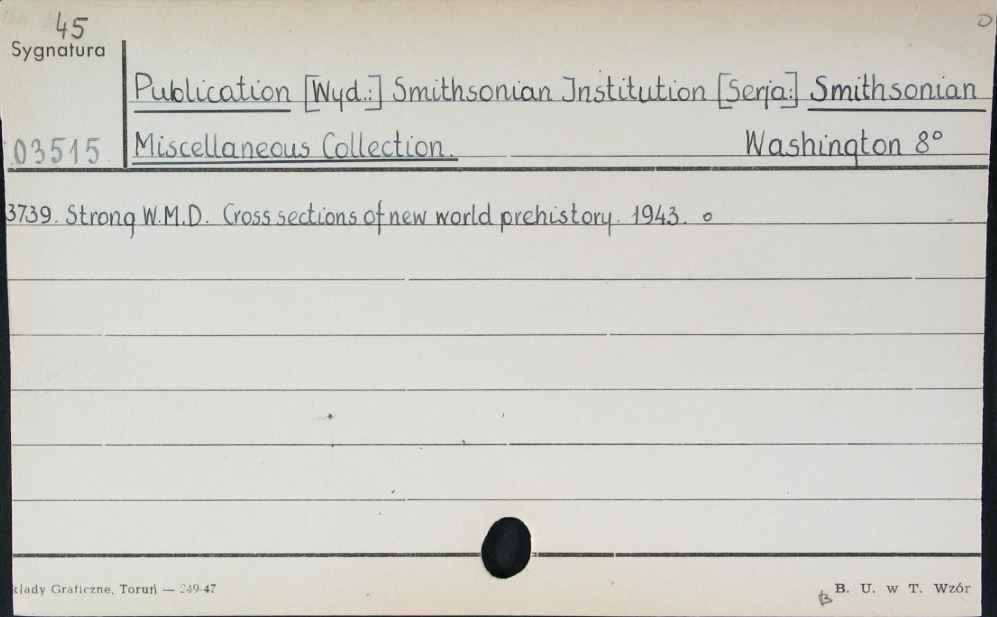 45
Sygnatura
Publication [Wyd.:] Smithsonian Institution [Serja:] Smithsonian
03515 Miscellaneous Collection. Washington 8°
3739. Strong W.M.D. Cross sections of new world prehistory. 1943. o
kłady Graficzne, Toruń — 249-47
B. U. w T. Wzór